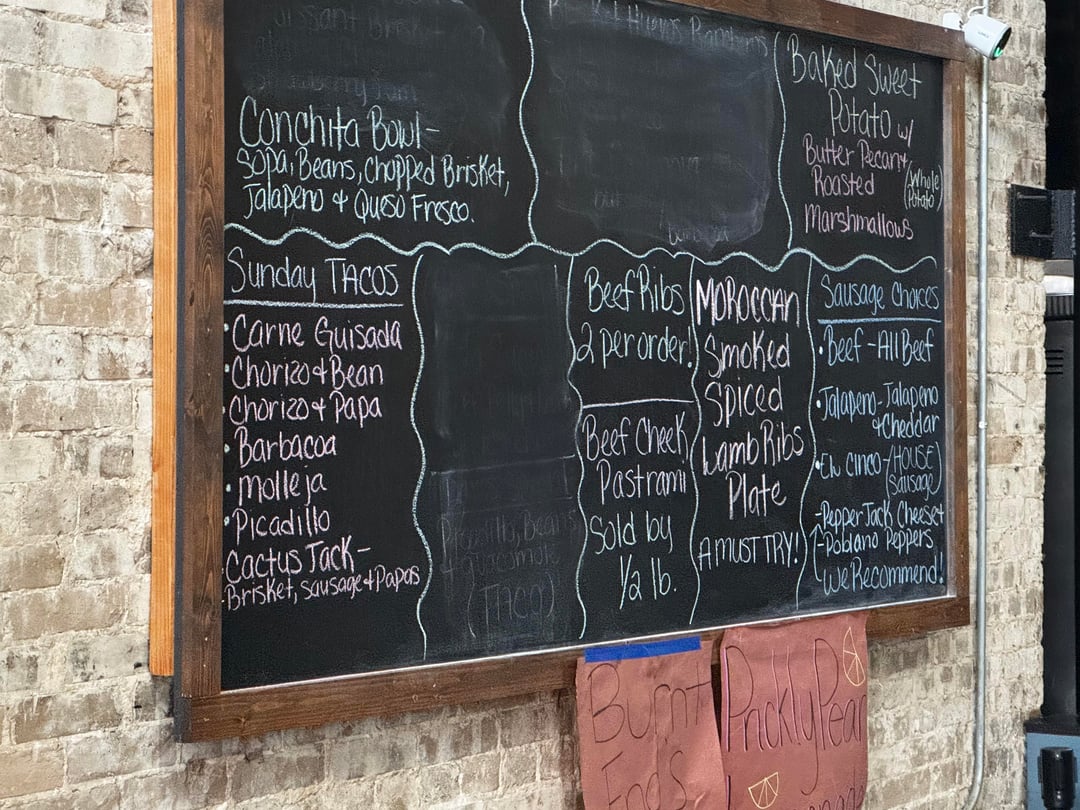 Conchita Bowl-
Sopa, Beans, Chopped Brisket,
Jalapeno & Queso Fresco.
Baked Sweet
Potato w/
Butter Pecan &
Roasted
Marshmallows
(Whole
Potato)
Sunday TACOS
• Carne Guisada
• Chorizo & Bean
• Chorizo & Papa
• Barbacoa
• Molleja
• Picadillo
Cactus Jack-
-Brisket, Sausage & Papas
Picadillo, Beans
+ guacamole
(TACO)
Beef Ribs
2 per order!
Beef Cheek
Pastrami
Sold by
1/2 lb.
MOROCCAN
Smoked
Spiced
Lamb Ribs
Plate
A MUST TRY!
Sausage Choices
• Beef - All Beef
• Jalapeno - Jalapeno
& Cheddar
• En Cinco - (HOUSE
Sausage)
-Pepper Jack Cheese &
-Poblano Peppers
-We Recommend!
Burnt
Ends
Prickly Pear